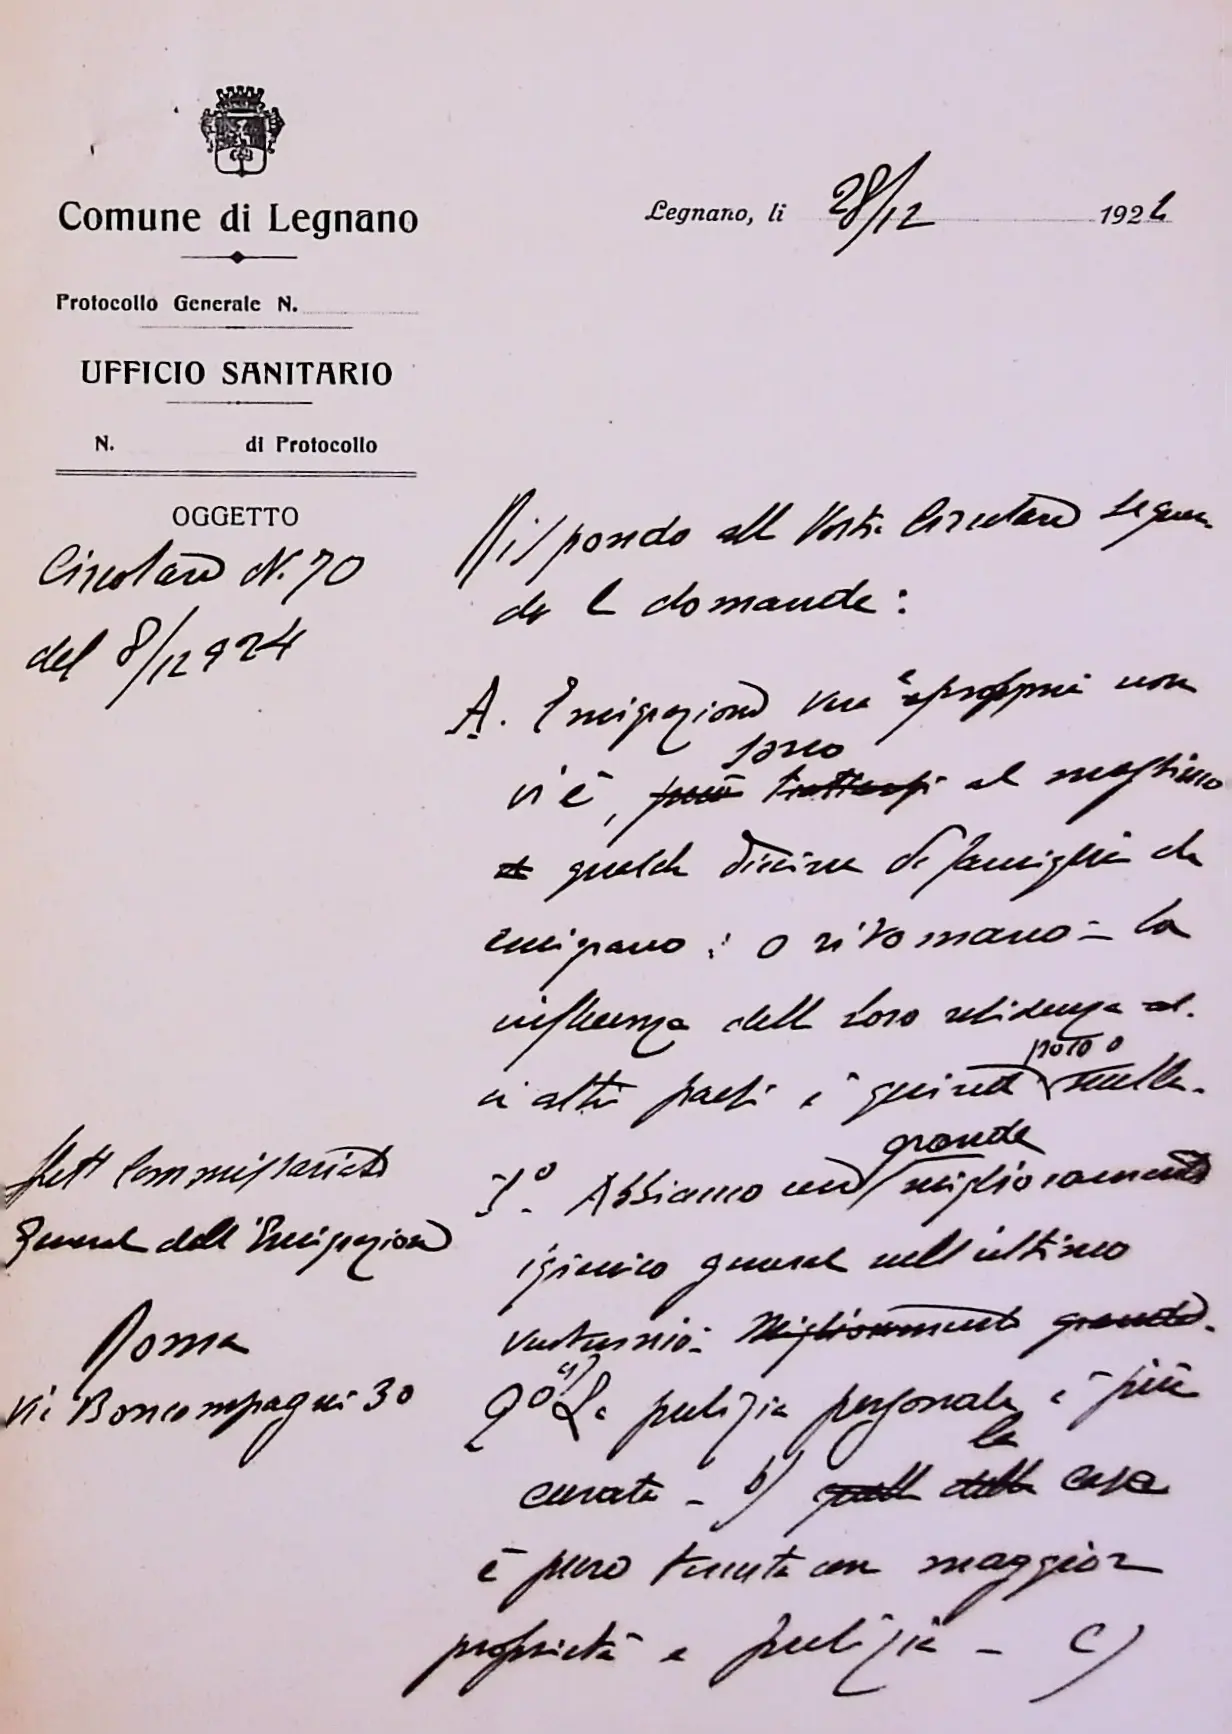 Comune di Legnano
Legnano, li 28/12 1924
Protocollo Generale N.
UFFICIO SANITARIO
N. di Protocollo
OGGETTO
Circolare N. 70
del 8/12 924
Rispondo alla Vostra Circolare seguen-
do le domande:
A. Emigrazione vera e propria non
vi è, sono al massimo
qualche decina di famiglie che
emigrano: o ritornano = la
influenza della loro residenza
in altri paesi è quindi poco o nulla.
1º. Abbiamo un grande miglioramento
igienico generale nell'ultimo
ventennio. Miglioramento grande.
2º a) La pulizia personale è più
curata - b) quella della la casa
è pure tenuta con maggior
proprietà e pulizia - c)
Spett Commissariato
Generale dell'Emigrazione
Roma
Via Boncompagni 30